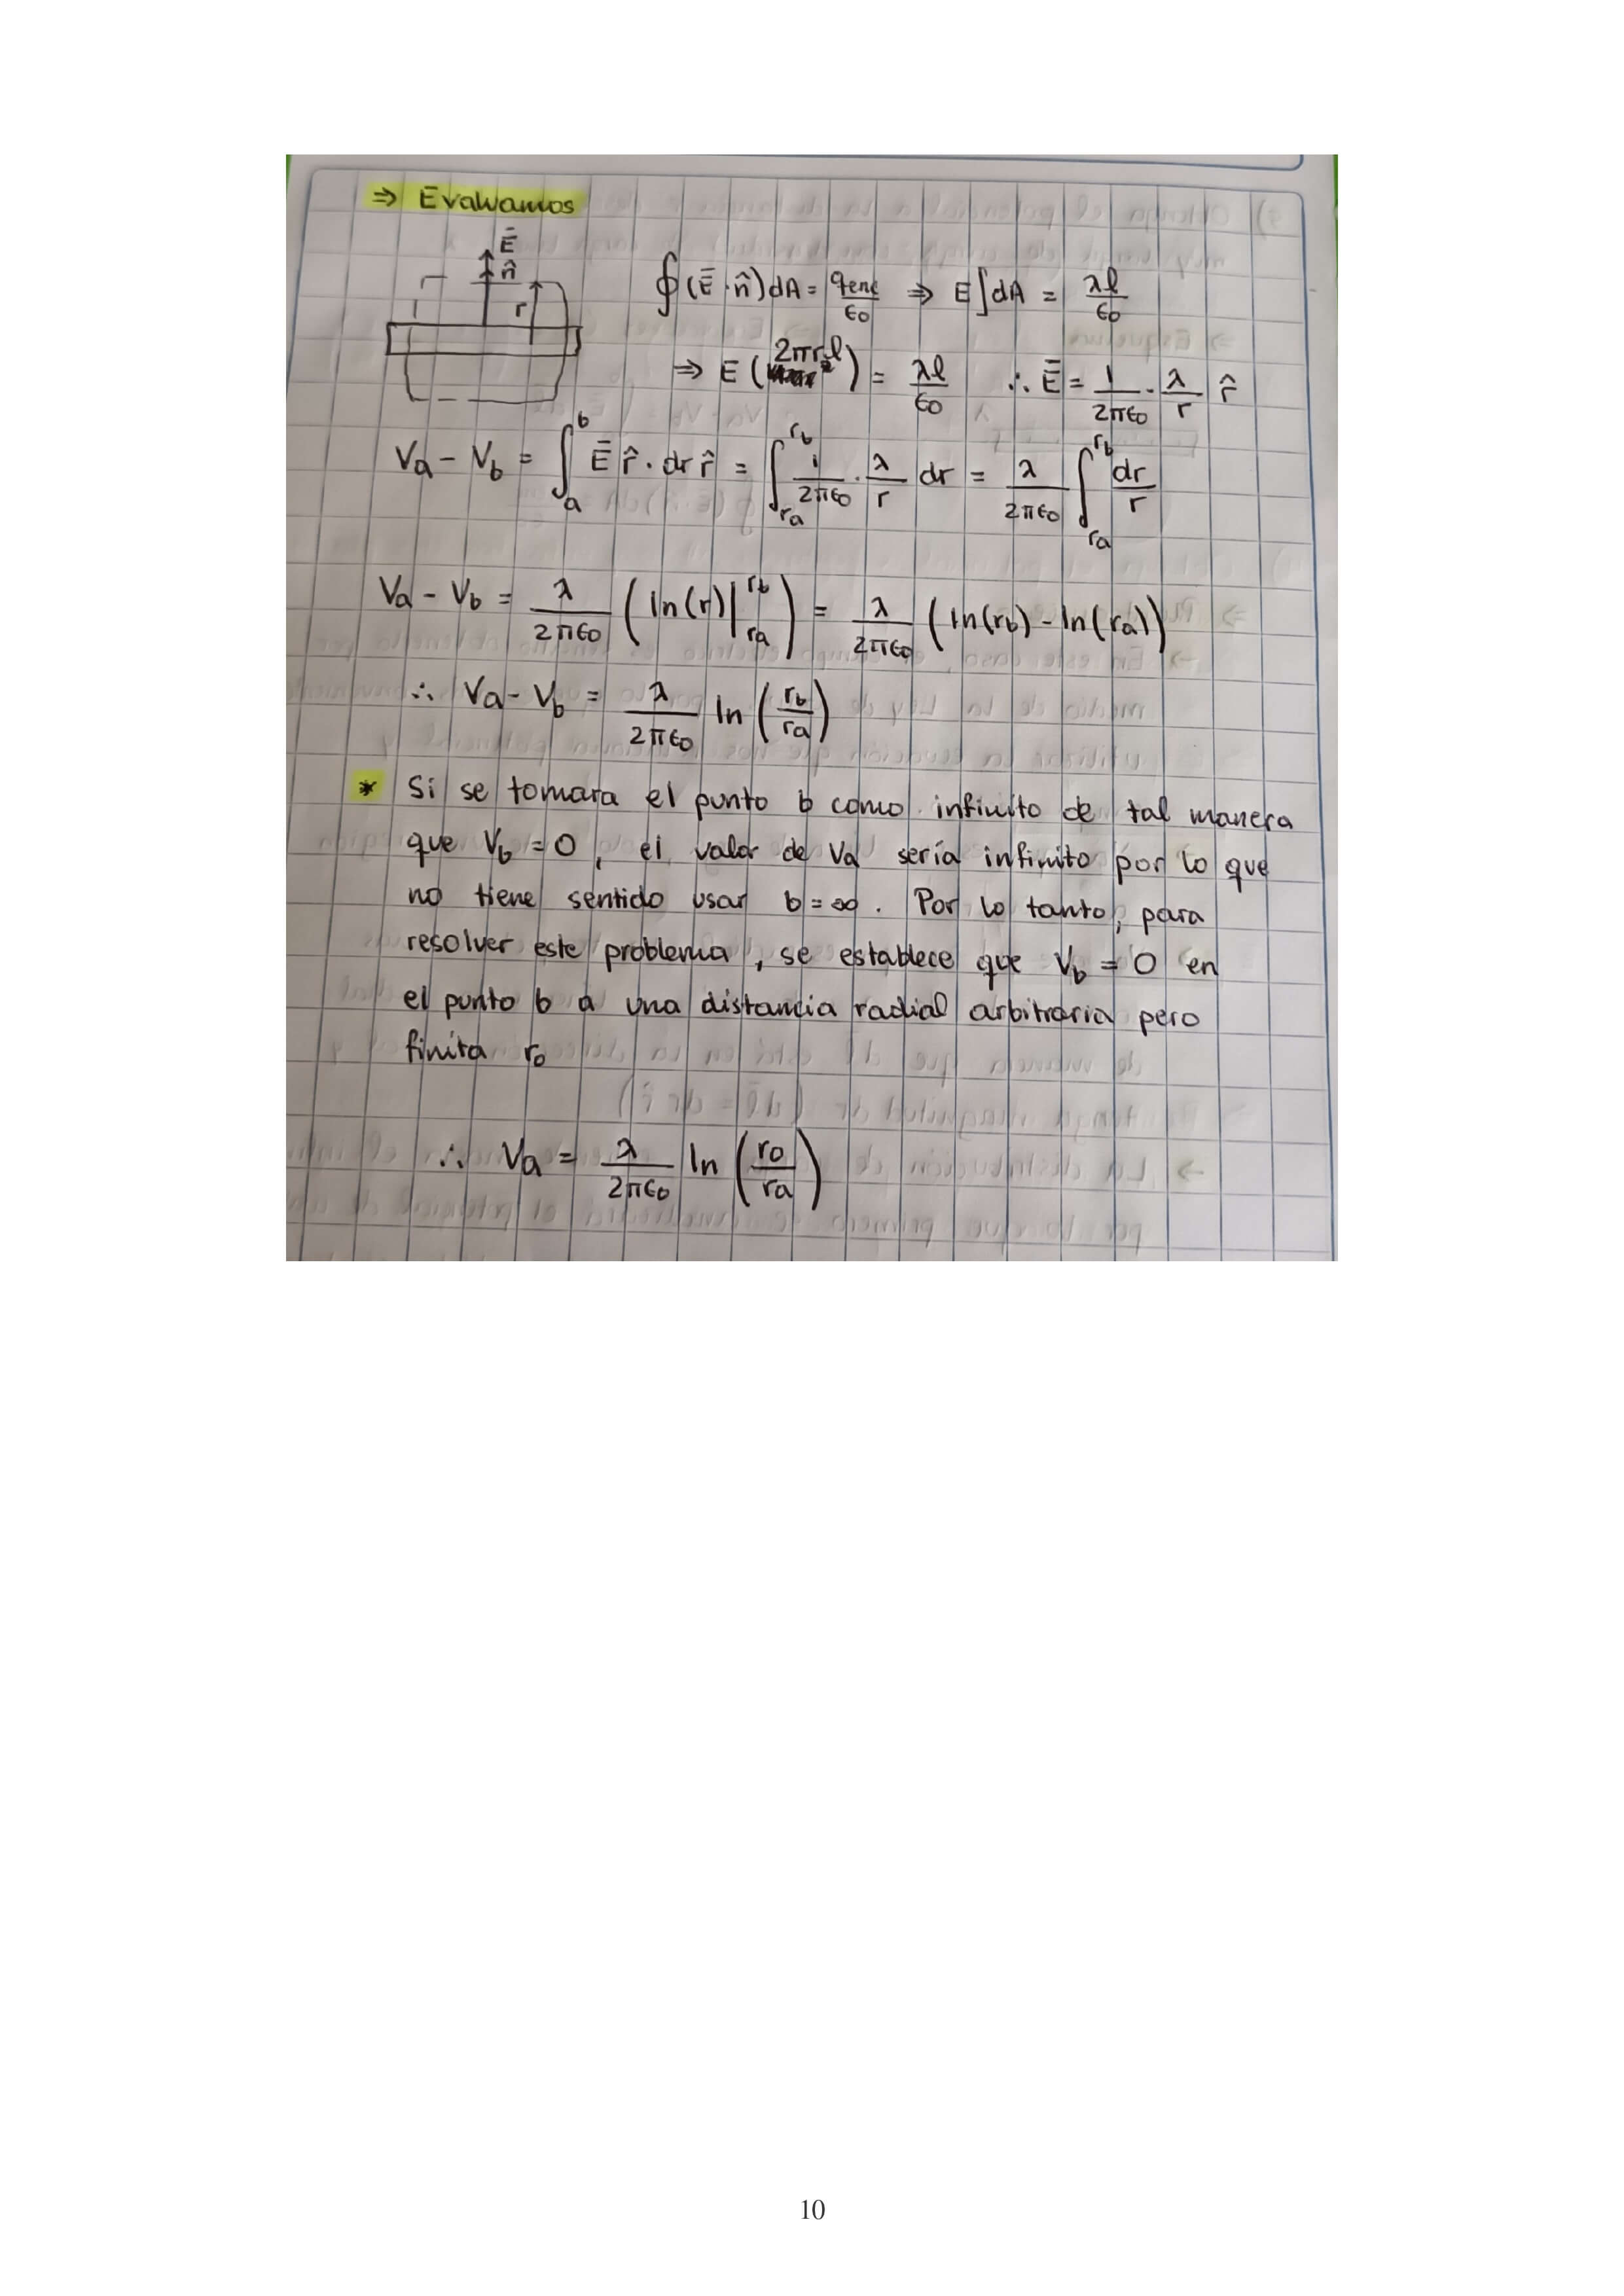 ⇒ Evaluamos
Ē
n̂
r
∮(Ē·n̂)dA = qenc/ϵ0 ⇒ E∫dA = λl/ϵ0
⇒ E(2πrl) = λl/ϵ0 ∴ Ē = 1/2πϵ0 · λ/r r̂
Va - Vb = ∫_a^b Ē r̂ · dr r̂ = ∫_ra^rb 1/2πϵ0 · λ/r dr = λ/2πϵ0 ∫_ra^rb dr/r
Va - Vb = λ/2πϵ0 (ln(r)|_ra^rb) = λ/2πϵ0 (ln(rb) - ln(ra))
∴ Va - Vb = λ/2πϵ0 ln(rb/ra)
* Si se tomara el punto b como infinito de tal manera
que Vb = 0, el valor de Va sería infinito por lo que
no tiene sentido usar b = ∞. Por lo tanto, para
resolver este problema, se establece que Vb = 0 en
el punto b a una distancia radial arbitraria pero
finita r0
∴ Va = λ/2πϵ0 ln(r0/ra)
10